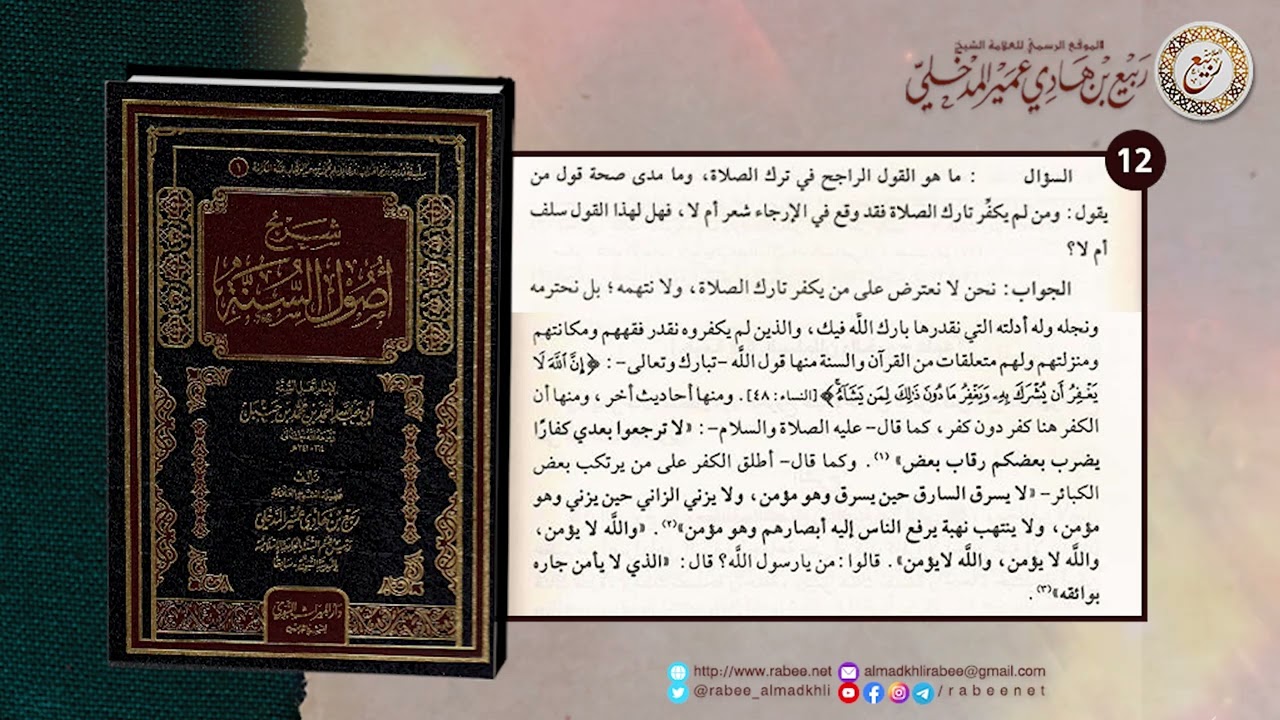 الموقع الرسمي للعلامة الشيخ
ربيع بن هادي عمير المدخلي
ربيع
12
السؤال : ما هو القول الراجح في ترك الصلاة، وما مدى صحة قول من
يقول: ومن لم يكفِّر تارك الصلاة فقد وقع في الإرجاء شعر أم لا، فهل لهذا القول سلف
أم لا؟
الجواب: نحن لا نعترض على من يكفر تارك الصلاة، ولا نتهمه؛ بل نحترمه
ونجله وله أدلته التي نقدرها بارك اللَّه فيك، والذين لم يكفروه نقدر فقههم ومكانتهم
ومنزلتهم ولهم متعلقات من القرآن والسنة منها قول اللَّه -تبارك وتعالى-: ﴿إِنَّ ٱللَّهَ لَا
يَغْفِرُ أَن يُشْرَكَ بِهِۦ وَيَغْفِرُ مَا دُونَ ذَٰلِكَ لِمَن يَشَآءُ﴾ [النساء: ٤٨]. ومنها أحاديث أخر، ومنها أن
الكفر هنا كفر دون كفر، كما قال- عليه الصلاة والسلام-: «لا ترجعوا بعدي كفارًا
يضرب بعضكم رقاب بعض» (١). وكما قال- أطلق الكفر على من يرتكب بعض
الكبائر- «لا يسرق السارق حين يسرق وهو مؤمن، ولا يزني الزاني حين يزني وهو
مؤمن، ولا ينتهب نهبة يرفع الناس إليه أبصارهم وهو مؤمن»(٢). «واللَّه لا يؤمن،
واللَّه لا يؤمن، واللَّه لايؤمن». قالوا: من يارسول اللَّه؟ قال: «الذي لا يأمن جاره
بوائقه»(٣).
١
شرح
أصول السنة
لإمام أهل السنة
أبي عبد الله أحمد بن محمد بن حنبل
تأليف
ربيع بن هادي عمير المدخلي
دار الميراث النبوي
http://www.rabee.net almadkhlirabee@gmail.com
@rabee_almadkhli /rabeenet